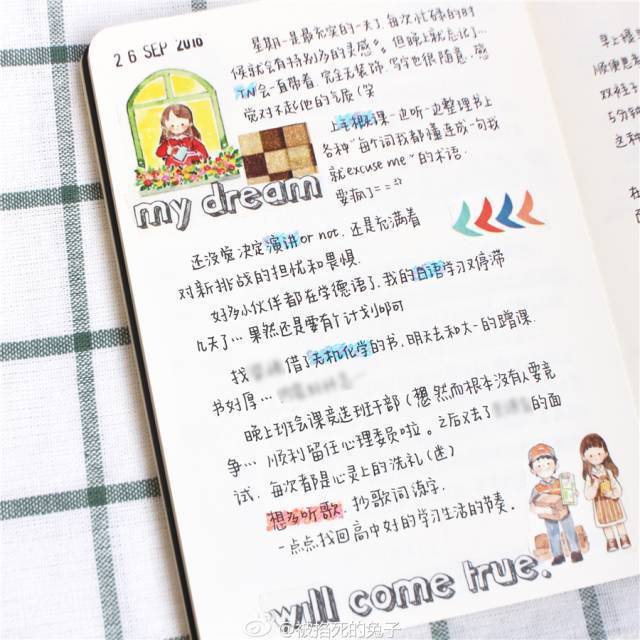 26 SEP 2016
星期一是最充实的一天了,每次忙碌的时
候就会有特别多的灵感。但晚上就忘记了…
TN会一直带着,完全无装饰,写字也很随意,感
觉对不起他的气质(笑
上毛概课一边听一边整理书上
各种"每个词我都懂连成一句我
就excuse me"的术语.
要疯了==
my dream
还没觉决定演讲or not,还是充满着
对新挑战的担忧和畏惧.
好多小伙伴都在学德语了,我的日语学习又停滞
几天了…果然还是要有个计划鸭可
找 借了无机化学的书,明天去和大一的蹭课.
书好厚…
晚上班会课竞选班干部(想然而根本没有人要竞
争…顺利留任心理委员啦。之后又去了 的面
试,每次都是心灵上的洗礼(迷)
想多听歌,抄歌词练字.
一点点找回高中好的学习生活的节奏.
will come true.
早上
顺便思
双鞋子
5分钟
这种
在
以
@被掐死的兔子